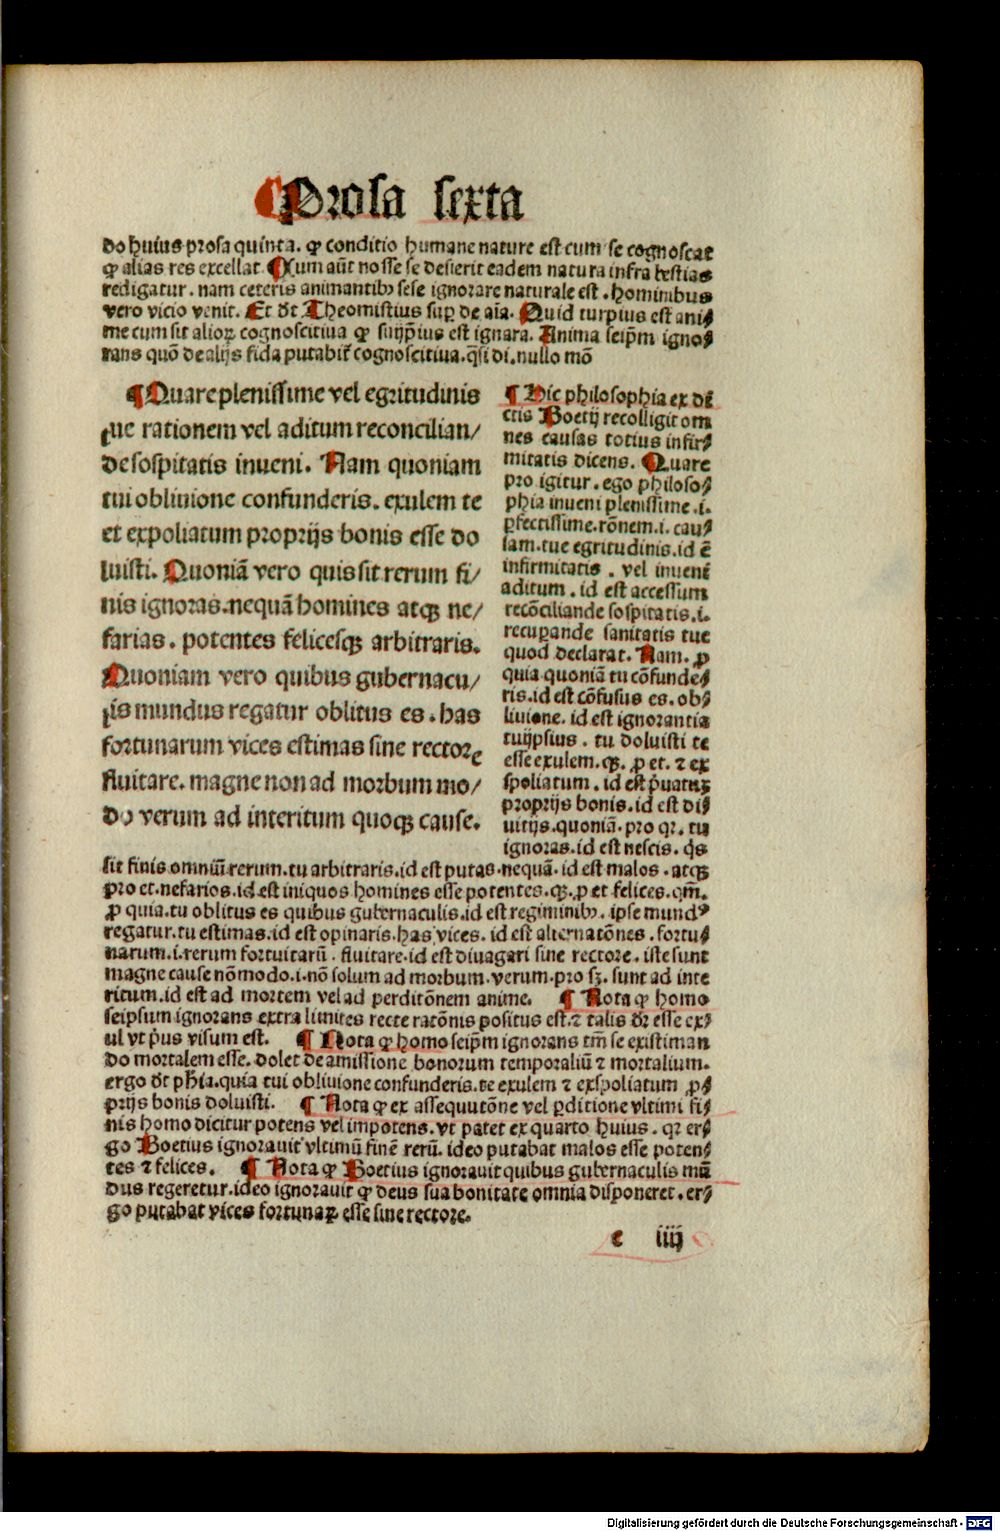 Prosa sexta
do huius prosa quinta. ꝙ conditio humane nature est cum se cognoscat
ꝙ alias res excellat. ¶Cum aūt nosse se desierit eadem natura infra bestias
redigatur. nam ceteris animantibꝫ sese ignorare naturale est. hominibus
vero vicio venit. Et dt̄ Theomistius sup de aīa. Quid turpius est ani⸗
me cum sit alioꝝ cognoscitiua ꝙ suiip̄ius est ignara. Anima seip̄m igno⸗
rans quō de alijs fida putabit̄ cognoscitiua. q̄si di. nullo mō
¶Quare plenissime vel egritudinis
tue rationem vel aditum reconcilian/
de sospitatis inueni. Nam quoniam
tui obliuione confunderis. exulem te
et expoliatum proprijs bonis esse do
luisti. Quoniā vero quis sit rerum fi/
nis ignoras. nequā homines atqꝫ ne/
farias. potentes felicesqꝫ arbitraris.
Quoniam vero quibus gubernacu/
lis mundus regatur oblitus es. has
fortunarum vices estimas sine rectore
fluitare. magne non ad morbum mo/
do verum ad interitum quoqꝫ cause.
¶Hic philosophia ex di
ctis Boetij recolligit om
nes causas totius infir⸗
mitatis dicens. Quare
pro igitur. ego philoso⸗
phia inueni plenissime .i.
ꝑfectissime. rōnem .i. cau⸗
sam. tue egritudinis. id ē
infirmitatis . vel inueni
aditum . id est accessum
recōciliande sospitatis .i.
recuꝑande sanitatis tue
quod declarat. Nam. ꝓ
quia quoniā tu cōfunde⸗
ris. id est cōfusus es. ob⸗
liuione. id est ignorantia
tuijpsius . tu doluisti te
esse exulem. qꝫ. ꝓ et. ⁊ ex
spoliatum . id est p̄uatuꝫ
proprijs bonis. id est di⸗
uitijs. quoniā. pro qꝛ. tu
ignoras. id est nescis. q̄s
sit finis omniū rerum. tu arbitraris. id est putas. nequā. id est malos. atqꝫ
pro et. nefarios. id est iniquos homines esse potentes. qꝫ. ꝓ et felices. qm̄.
ꝓ quia. tu oblitus es quibus gubernaculis. id est regiminibꝫ. ipse mundꝰ
regatur. tu estimas. id est opinaris. has vices. id est alternatōnes . fortu⸗
narum .i. rerum fortuitarū . fluitare. id est diuagari sine rectore. iste sunt
magne cause nōmodo .i. nō solum ad morbum. verum. pro sꝫ. sunt ad inte
ritum. id est ad mortem vel ad perditōnem anime. ¶Nota ꝙ homo
seipsum ignorans extra limites recte ratōnis positus est. ⁊ talis dr̄ esse ex⸗
ul vt p̄us visum est. ¶Nota ꝙ homo seip̄m ignorans tm̄ se existiman
do mortalem esse. dolet de amissione bonorum temporaliū ⁊ mortalium.
ergo dt̄ ph̄ia. quia tui obliuione confunderis. te exulem ⁊ exspoliatum ꝓ⸗
prijs bonis doluisti. ¶Nota ꝙ ex assequutōne vel ꝑditione vltimi fi⸗
nis homo dicitur potens vel impotens. vt patet ex quarto huius. qꝛ er⸗
go Boetius ignorauit vltimū finē rerū. ideo putabat malos esse poten⸗
tes ⁊ felices. ¶Nota ꝙ Boetius ignorauit quibus gubernaculis mū
dus regeretur. ideo ignorauit ꝙ deus sua bonitate omnia disponeret. er⸗
go putabat vices fortunaꝝ esse sine rectore.
e iiij
Digitalisierung gefördert durch die Deutsche Forschungsgemeinschaft - DFG